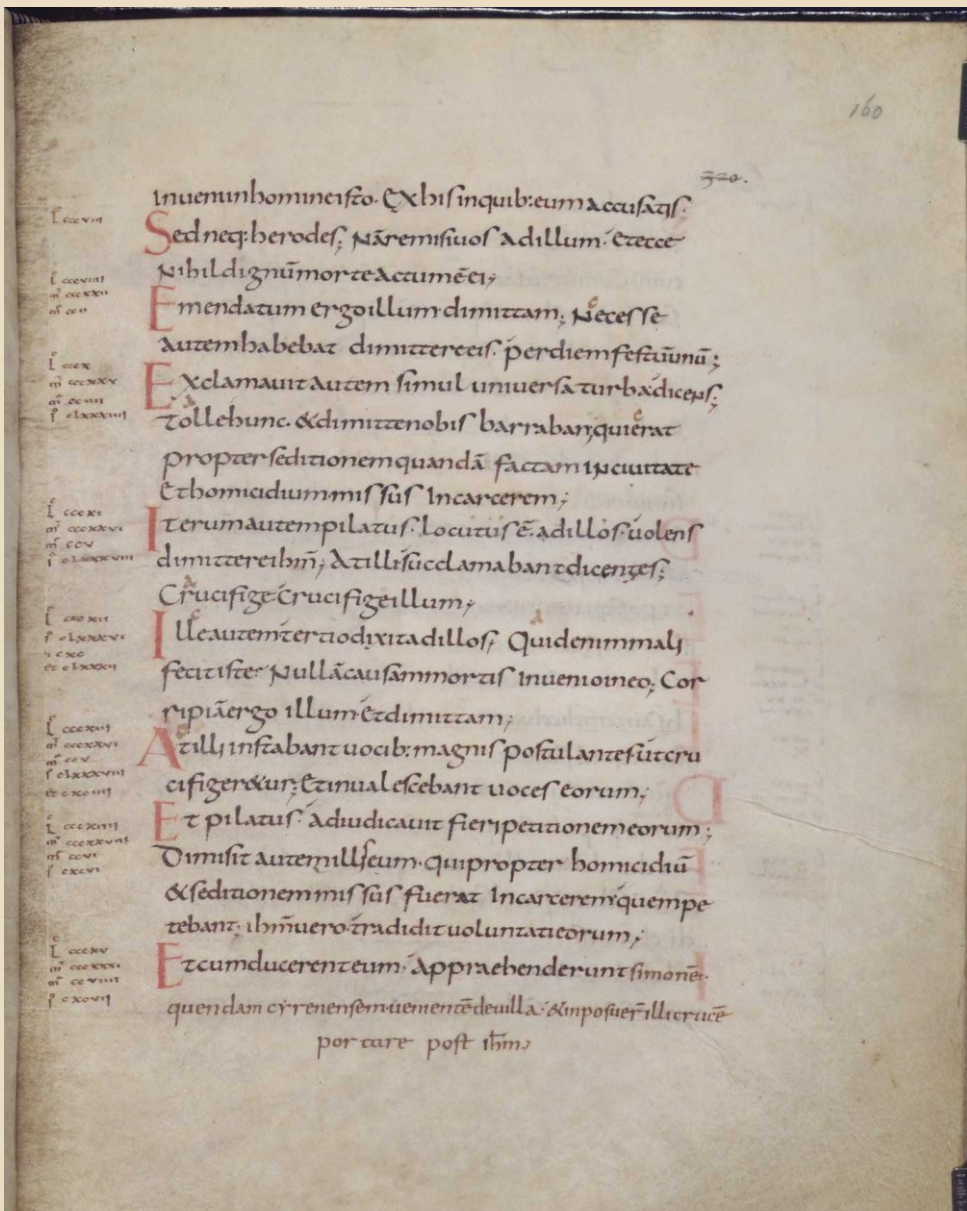 160
320.
inueni in homine isto. Ex his in quib: eum accusatis.
Sed neq: herodes; Nā remisi uos ad illum. Et ecce
Nihil dignū morte actum ē ei;
Emendatum ergo illum dimittam; Necesse
autem habebat dimittere eis. per diem festū unū;
Exclamauit autem simul uniuersa turba dicens;
Tolle hunc. & dimitte nobis barraban; qui erat
propter seditionem quandā factam in ciuitate
Et homicidium missus In carcerem;
Iterum autem pilatus. locutus ē. ad illos. uolens
dimittere ihm̄; At illi succlamabant dicentes;
Crucifige Crucifige illum;
Ille autem tertio dixit ad illos; Quid enim mali
fecit iste. Nullā causam mortis Inuenio in eo; Cor
ripiā ergo illum. Et dimittam;
At illi instabant uocib: magnis postulantes ut cru
cifiger&ur; Et inualescebant uoces eorum;
Et pilatus adiudicauit fieri petitionem eorum;
Dimisit autem illis eum. qui propter homicidiū
& seditionem missus fuerat In carcerem. quem pe
tebant; ihm̄ uero tradidit uoluntati eorum;
Et cum ducerent eum. Appraehenderunt simonē.
quendam cyrenensem. uenientē de uilla. & inposuer̄ illi crucē
portare post ihm̄;